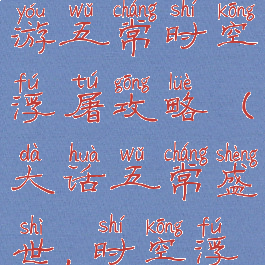 yóu wǔ cháng shí kōng
游五常时空
fú tú gōng lüè
浮屠攻略（
dà huà wǔ cháng shèng
大话五常盛
shì shí kōng fú
世,时空浮